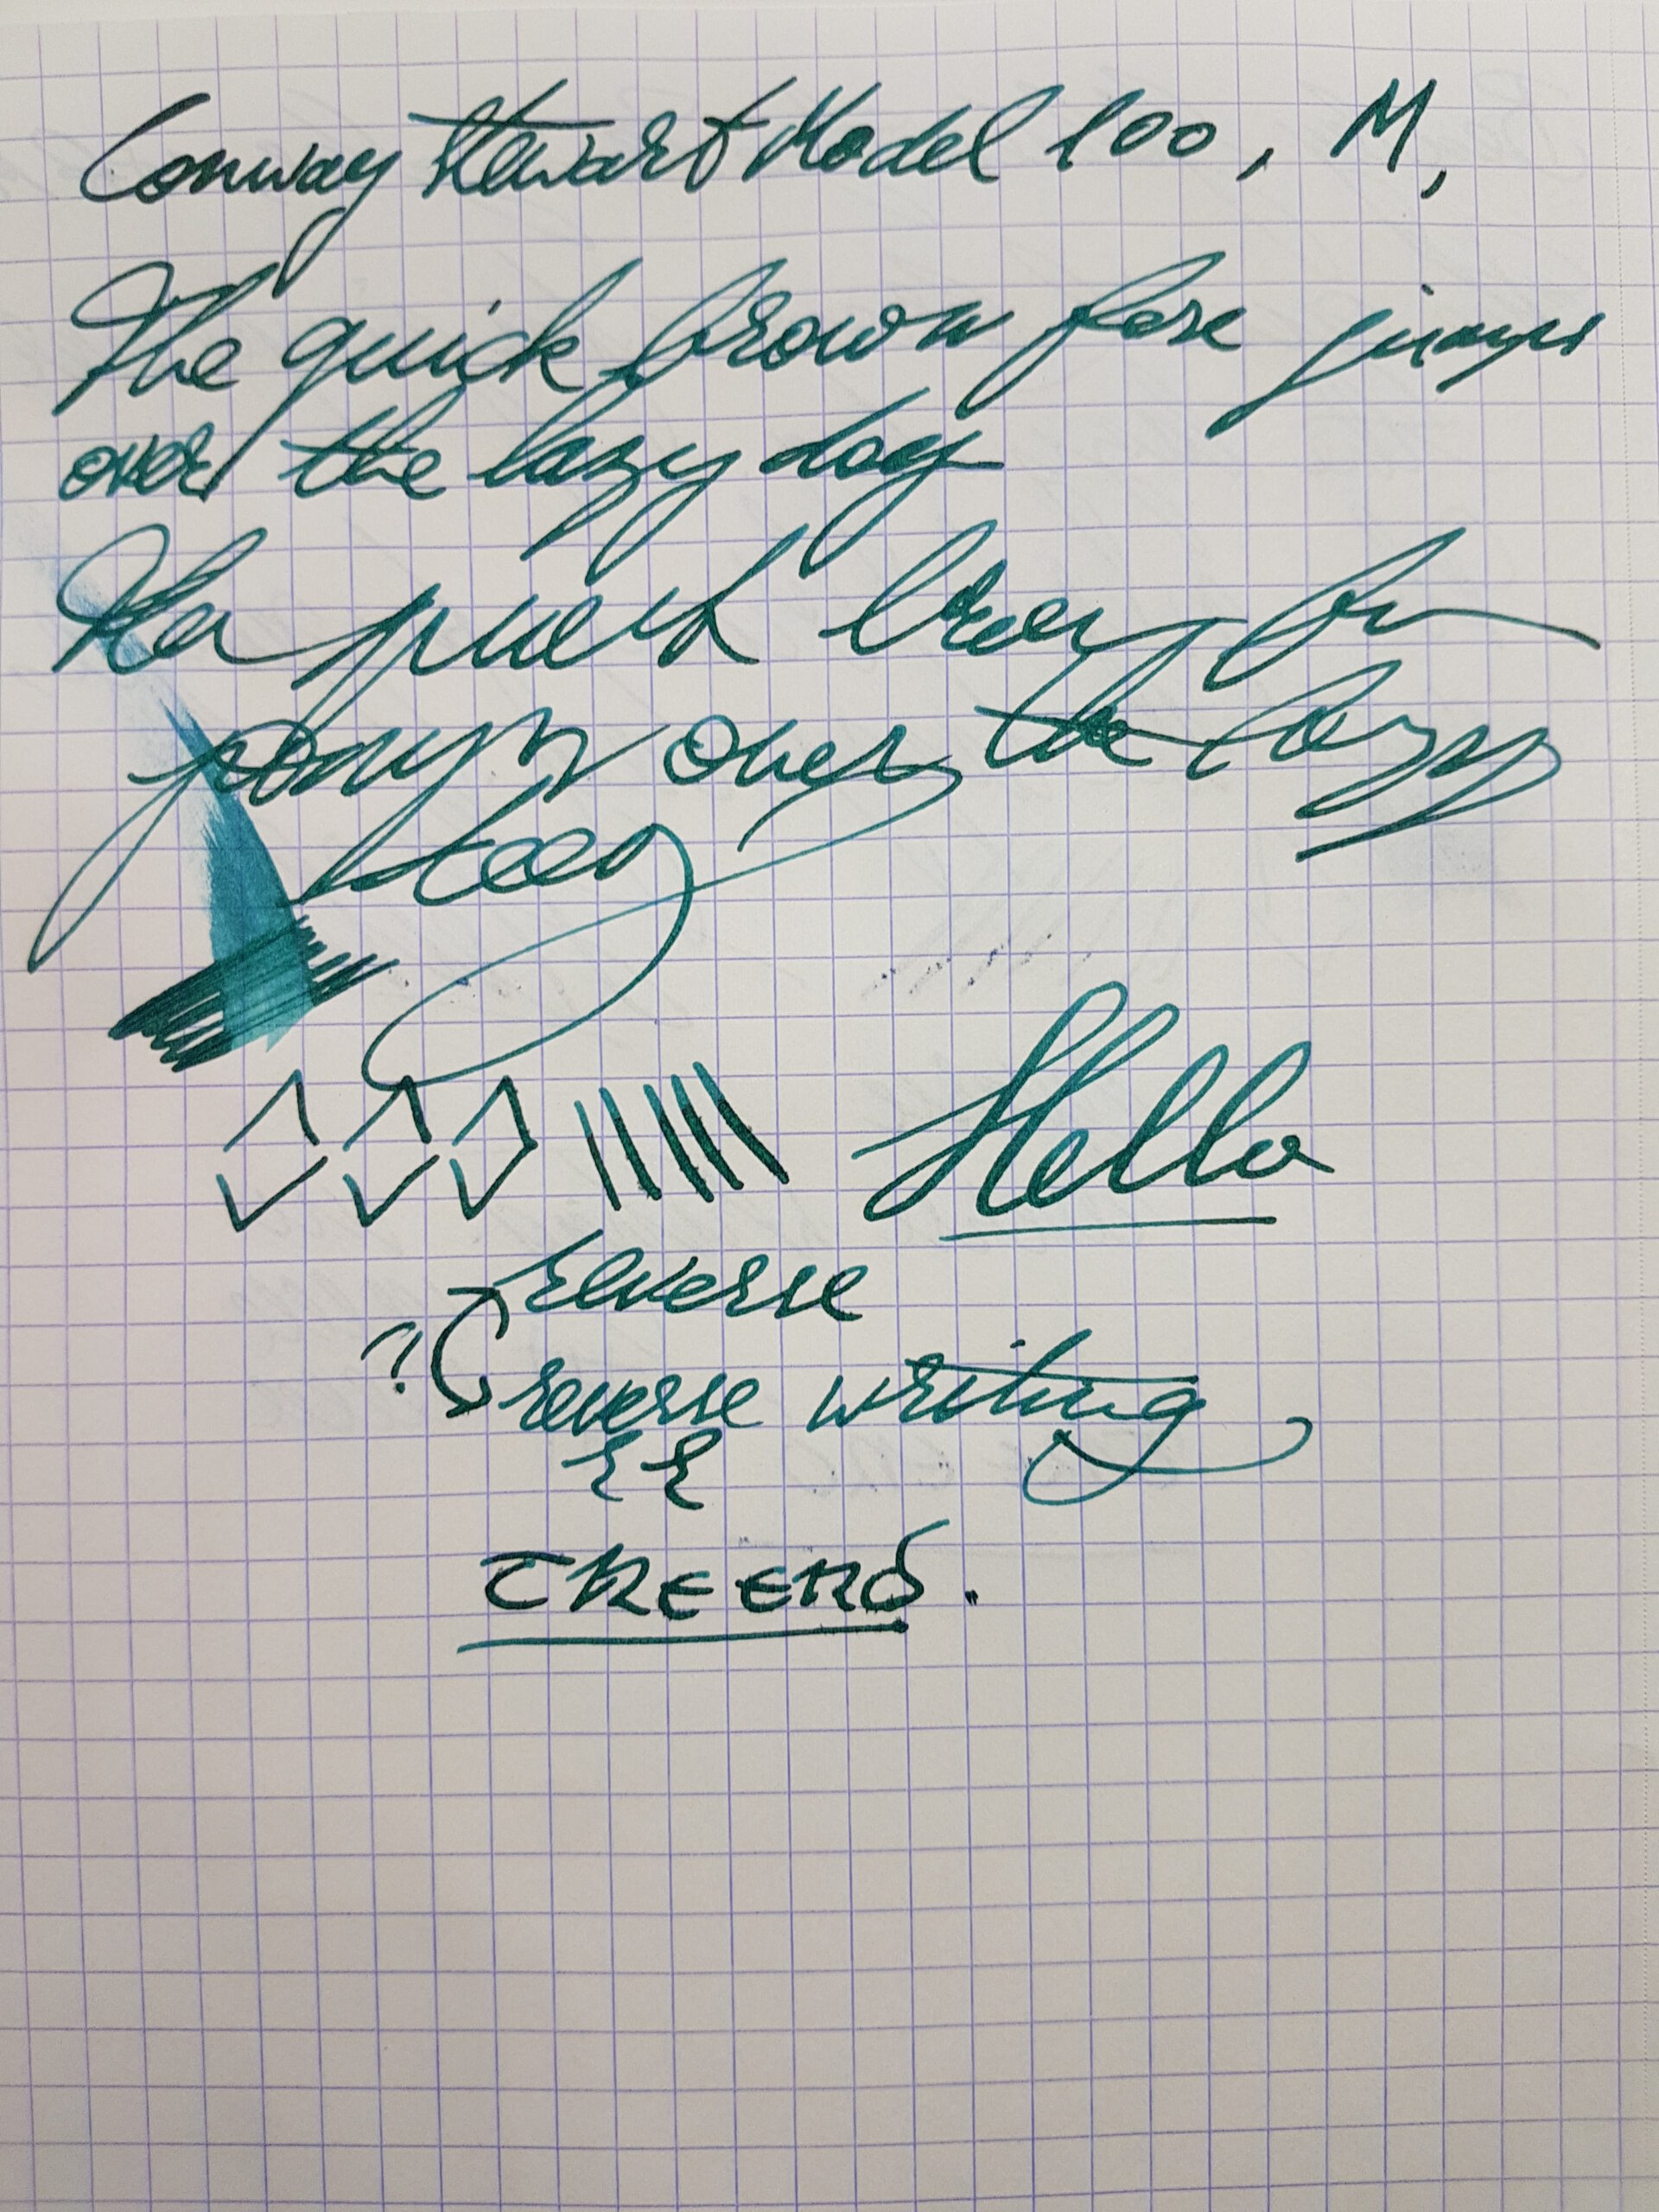 Conway Stewart Model 100, M,
The quick brown foxe jumps
over the lazy dog
The quick brown fox
jumps over the lazy
dog
Hello
reverse
?
reverse writing
THE END.